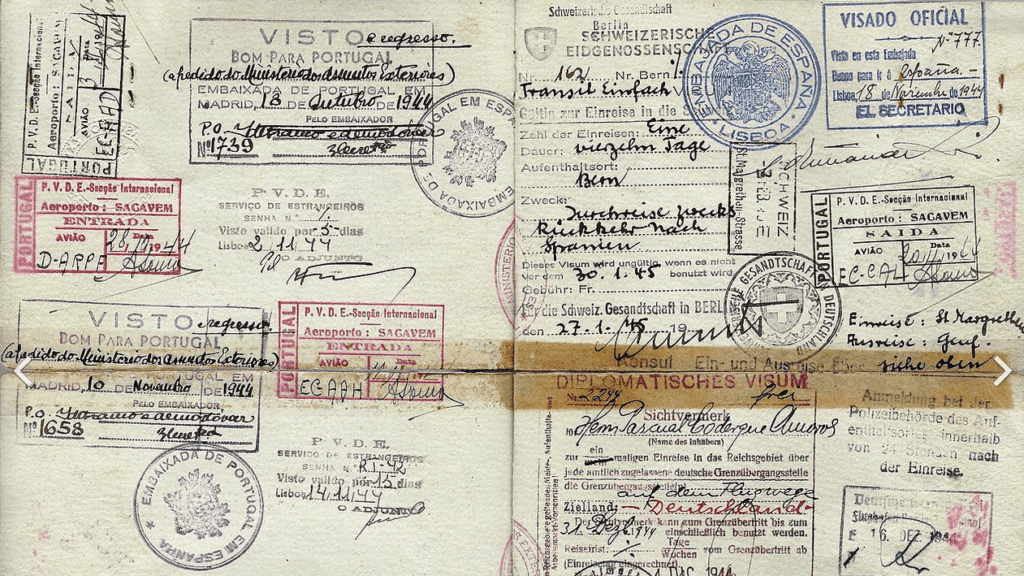 P. V. D. E.-Secção Internacional
Aeroporto: SACAVEM
SAIDA
AVIÃO
Data
ECAAD
PORTUGAL
VISTO e regresso.
BOM PARA PORTUGAL
(a pedido do Ministerio dos Asuntos Exteriores)
EMBAIXADA DE PORTUGAL EM
MADRID, 18 DE Outubro DE 1944
PELO EMBAIXADOR
P.O.
Nº 1739
EMBAIXADA DE PORTUGAL EM ESPANHA
PORTUGAL
P. V. D. E.-Secção Internacional
Aeroporto: SACAVEM
ENTRADA
AVIÃO
Data
28 10 1944
D-ARPE
P. V. D. E.
SERVIÇO DE ESTRANGEIROS
SENHA N.º
Visto valido por 5 dias
Lisboa 2.11.44
O ADJUNTO
VISTO e regresso
BOM PARA PORTUGAL
(a pedido do Ministerio dos Asuntos Exteriores)
EMBAIXADA DE PORTUGAL EM
MADRID, 10 DE Novembro DE 1944
PELO EMBAIXADOR
P.O.
Nº 1658
EMBAIXADA DE PORTUGAL EM ESPANHA
PORTUGAL
P. V. D. E.-Secção Internacional
Aeroporto: SACAVEM
ENTRADA
AVIÃO
Data
ECAAH
P. V. D. E.
SERVIÇO DE ESTRANGEIROS
SENHA N.º
Visto valido por 15 dias
Lisboa 14.11.44
O ADJUNTO
Schweizerische Gesandtschaft
Berlin
SCHWEIZERISCHE
EIDGENOSSENSCHAFT
Nr. 162/ Nr. Bern
Transit Einfach
Gültig zur Einreise in die
Zahl der Einreisen: Eine
Dauer: vierzehn Tage
Aufenthaltsort:
Bern
Zweck:
Durchreise zwecks
Rückkehr nach
Spanien
Dieses Visum wird ungültig, wenn es nicht
vor dem 30.1.45 benutzt wird
Gebühr: Fr.
Für die Schweiz. Gesandtschaft in BERLIN
den 27.1.45 19
Konsul
EMBAJADA DE ESPAÑA
LISBOA
VISADO OFICIAL
Nº 777.
Visto en esta Embajada
Bueno para ir á España.-
Lisboa, 18 de Noviembre de 1944
EL SECRETARIO
SCHWEIZ
St. Margrethen-Strasse
PORTUGAL
P. V. D. E.-Secção Internacional
Aeroporto: SACAVEM
SAIDA
AVIÃO
Data
EC-CAL
GESANDTSCHAFT
DEUTSCHLAND
Einreise: St Margrethen
Ausreise: Genf.
siehe oben
Ein- und Ausreise über
DIPLOMATISCHES VISUM
Nr. 2244 frei
Sichtvermerk
Pascual
(Name des Inhabers)
zur ein maligen Einreise in das Reichsgebiet über
jede amtlich zugelassene deutsche Grenzübergangsstelle
die Grenzübergangsstelle(n)
auf dem Flugwege
Zielland: -Deutschland-
Der Sichtvermerk kann zum Grenzübertritt bis zum
31. Dez. 1944 einschließlich benutzt werden.
Reisefrist: Tage
Wochen vom Grenzübertritt ab
(Einreisetag eingerechnet)
Anmeldung bei der
Polizeibehörde des Auf-
enthaltsortes innerhalb
von 24 Stunden nach
der Einreise.
16. DEZ. 1944